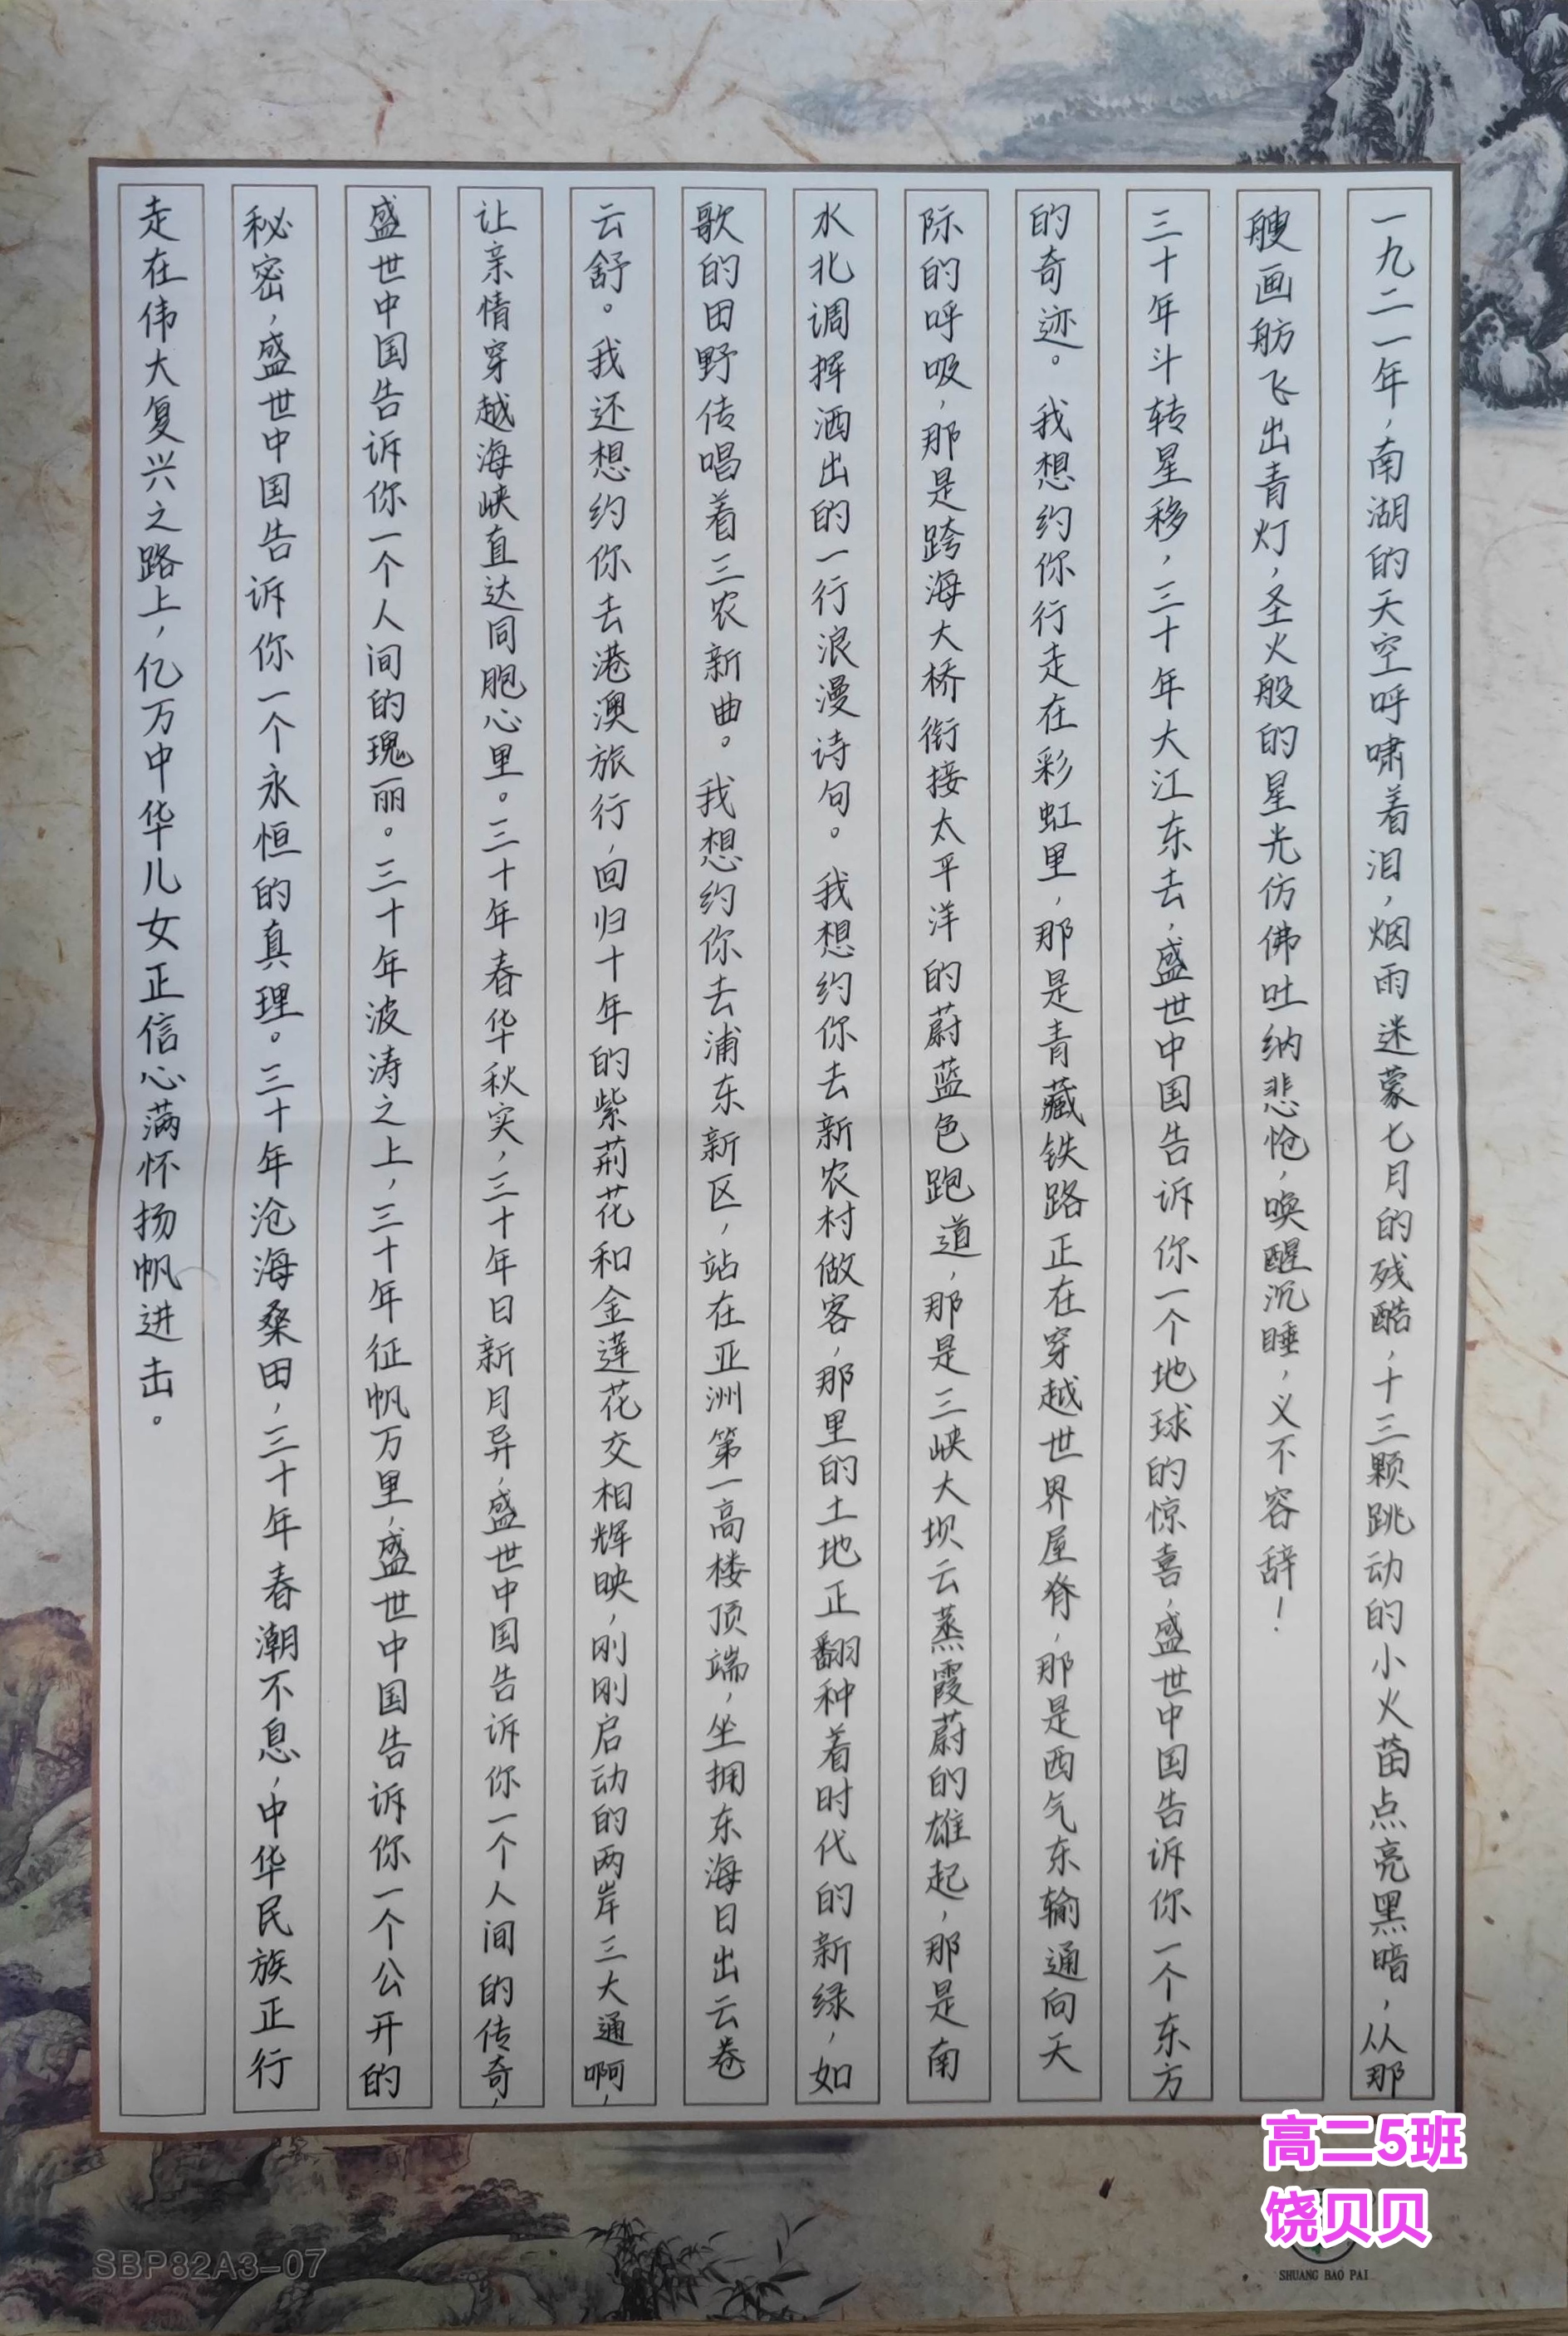 一九二一年，南湖的天空呼啸着泪，烟雨迷蒙七月的残酷，十三颗跳动的小火苗点亮黑暗，从那
艘画舫飞出青灯，圣火般的星光仿佛吐纳悲怆，唤醒沉睡，义不容辞！
三十年斗转星移，三十年大江东去，盛世中国告诉你一个地球的惊喜，盛世中国告诉你一个东方
的奇迹。我想约你行走在彩虹里，那是青藏铁路正在穿越世界屋脊，那是西气东输通向天
际的呼吸，那是跨海大桥衔接太平洋的蔚蓝色跑道，那是三峡大坝云蒸霞蔚的雄起，那是南
水北调挥洒出的一行浪漫诗句。我想约你去新农村做客，那里的土地正翻种着时代的新绿，如
歌的田野传唱着三农新曲。我想约你去浦东新区，站在亚洲第一高楼顶端，坐拥东海日出云卷
云舒。我还想约你去港澳旅行，回归十年的紫荆花和金莲花交相辉映，刚刚启动的两岸三大通啊，
让亲情穿越海峡直达同胞心里。三十年春华秋实，三十年日新月异，盛世中国告诉你一个人间的传奇，
盛世中国告诉你一个人间的瑰丽。三十年波涛之上，三十年征帆万里，盛世中国告诉你一个公开的
秘密，盛世中国告诉你一个永恒的真理。三十年沧海桑田，三十年春潮不息，中华民族正行
走在伟大复兴之路上，亿万中华儿女正信心满怀扬帆进击。
高二5班
饶贝贝
SHUANG BAO PAI
SBP82A3-07